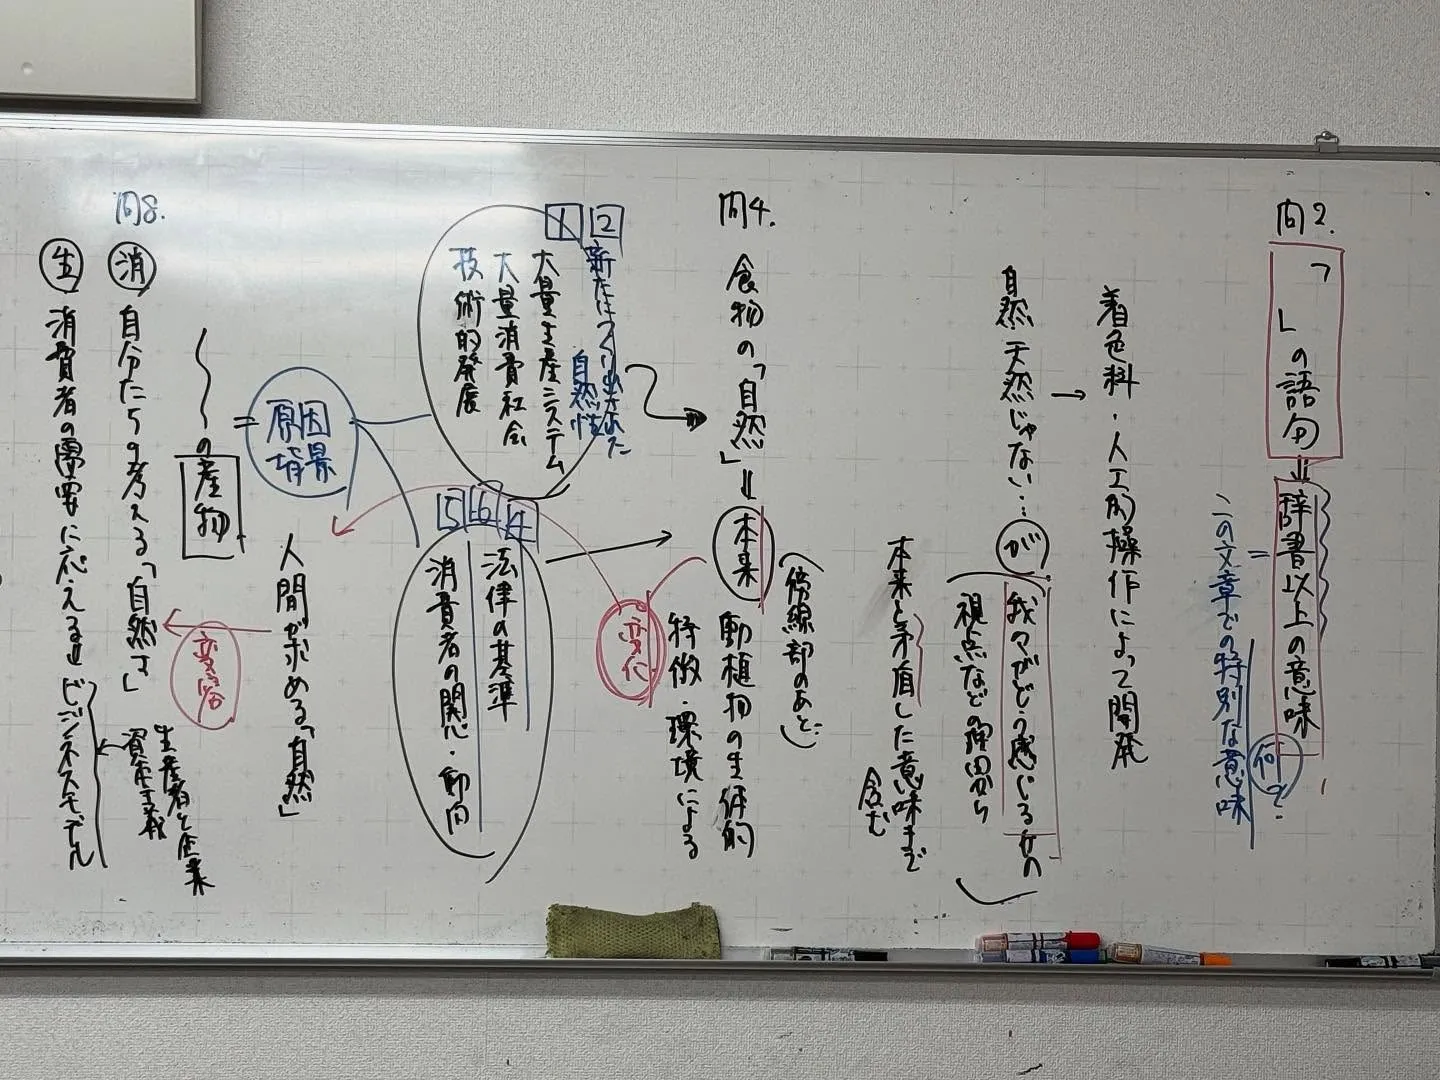 問2.
「 」の語句=辞書以上の意味
何?
=この文章での特別な意味
着色料・人工的操作によって開発
自然 天然じゃない…が
→
我々がどう感じるかの
視点などの理由から
本来と矛盾した意味まで
含む
問4.
食物の「自然」=本来
(傍線部のあと…)
動植物の生体的
特徴・環境による
変化
1 2
新たにつくり出された
自然性
大量生産システム
大量消費社会
技術的発展
5 6 4
法律の基準
消費者の関心・動向
原因
背景
=
人間が求める「自然」
の産物
問8.
消 自分たちの考える「自然さ」
生産者と企業
資本主義
生 消費者の需要に応える=ビジネスモデル